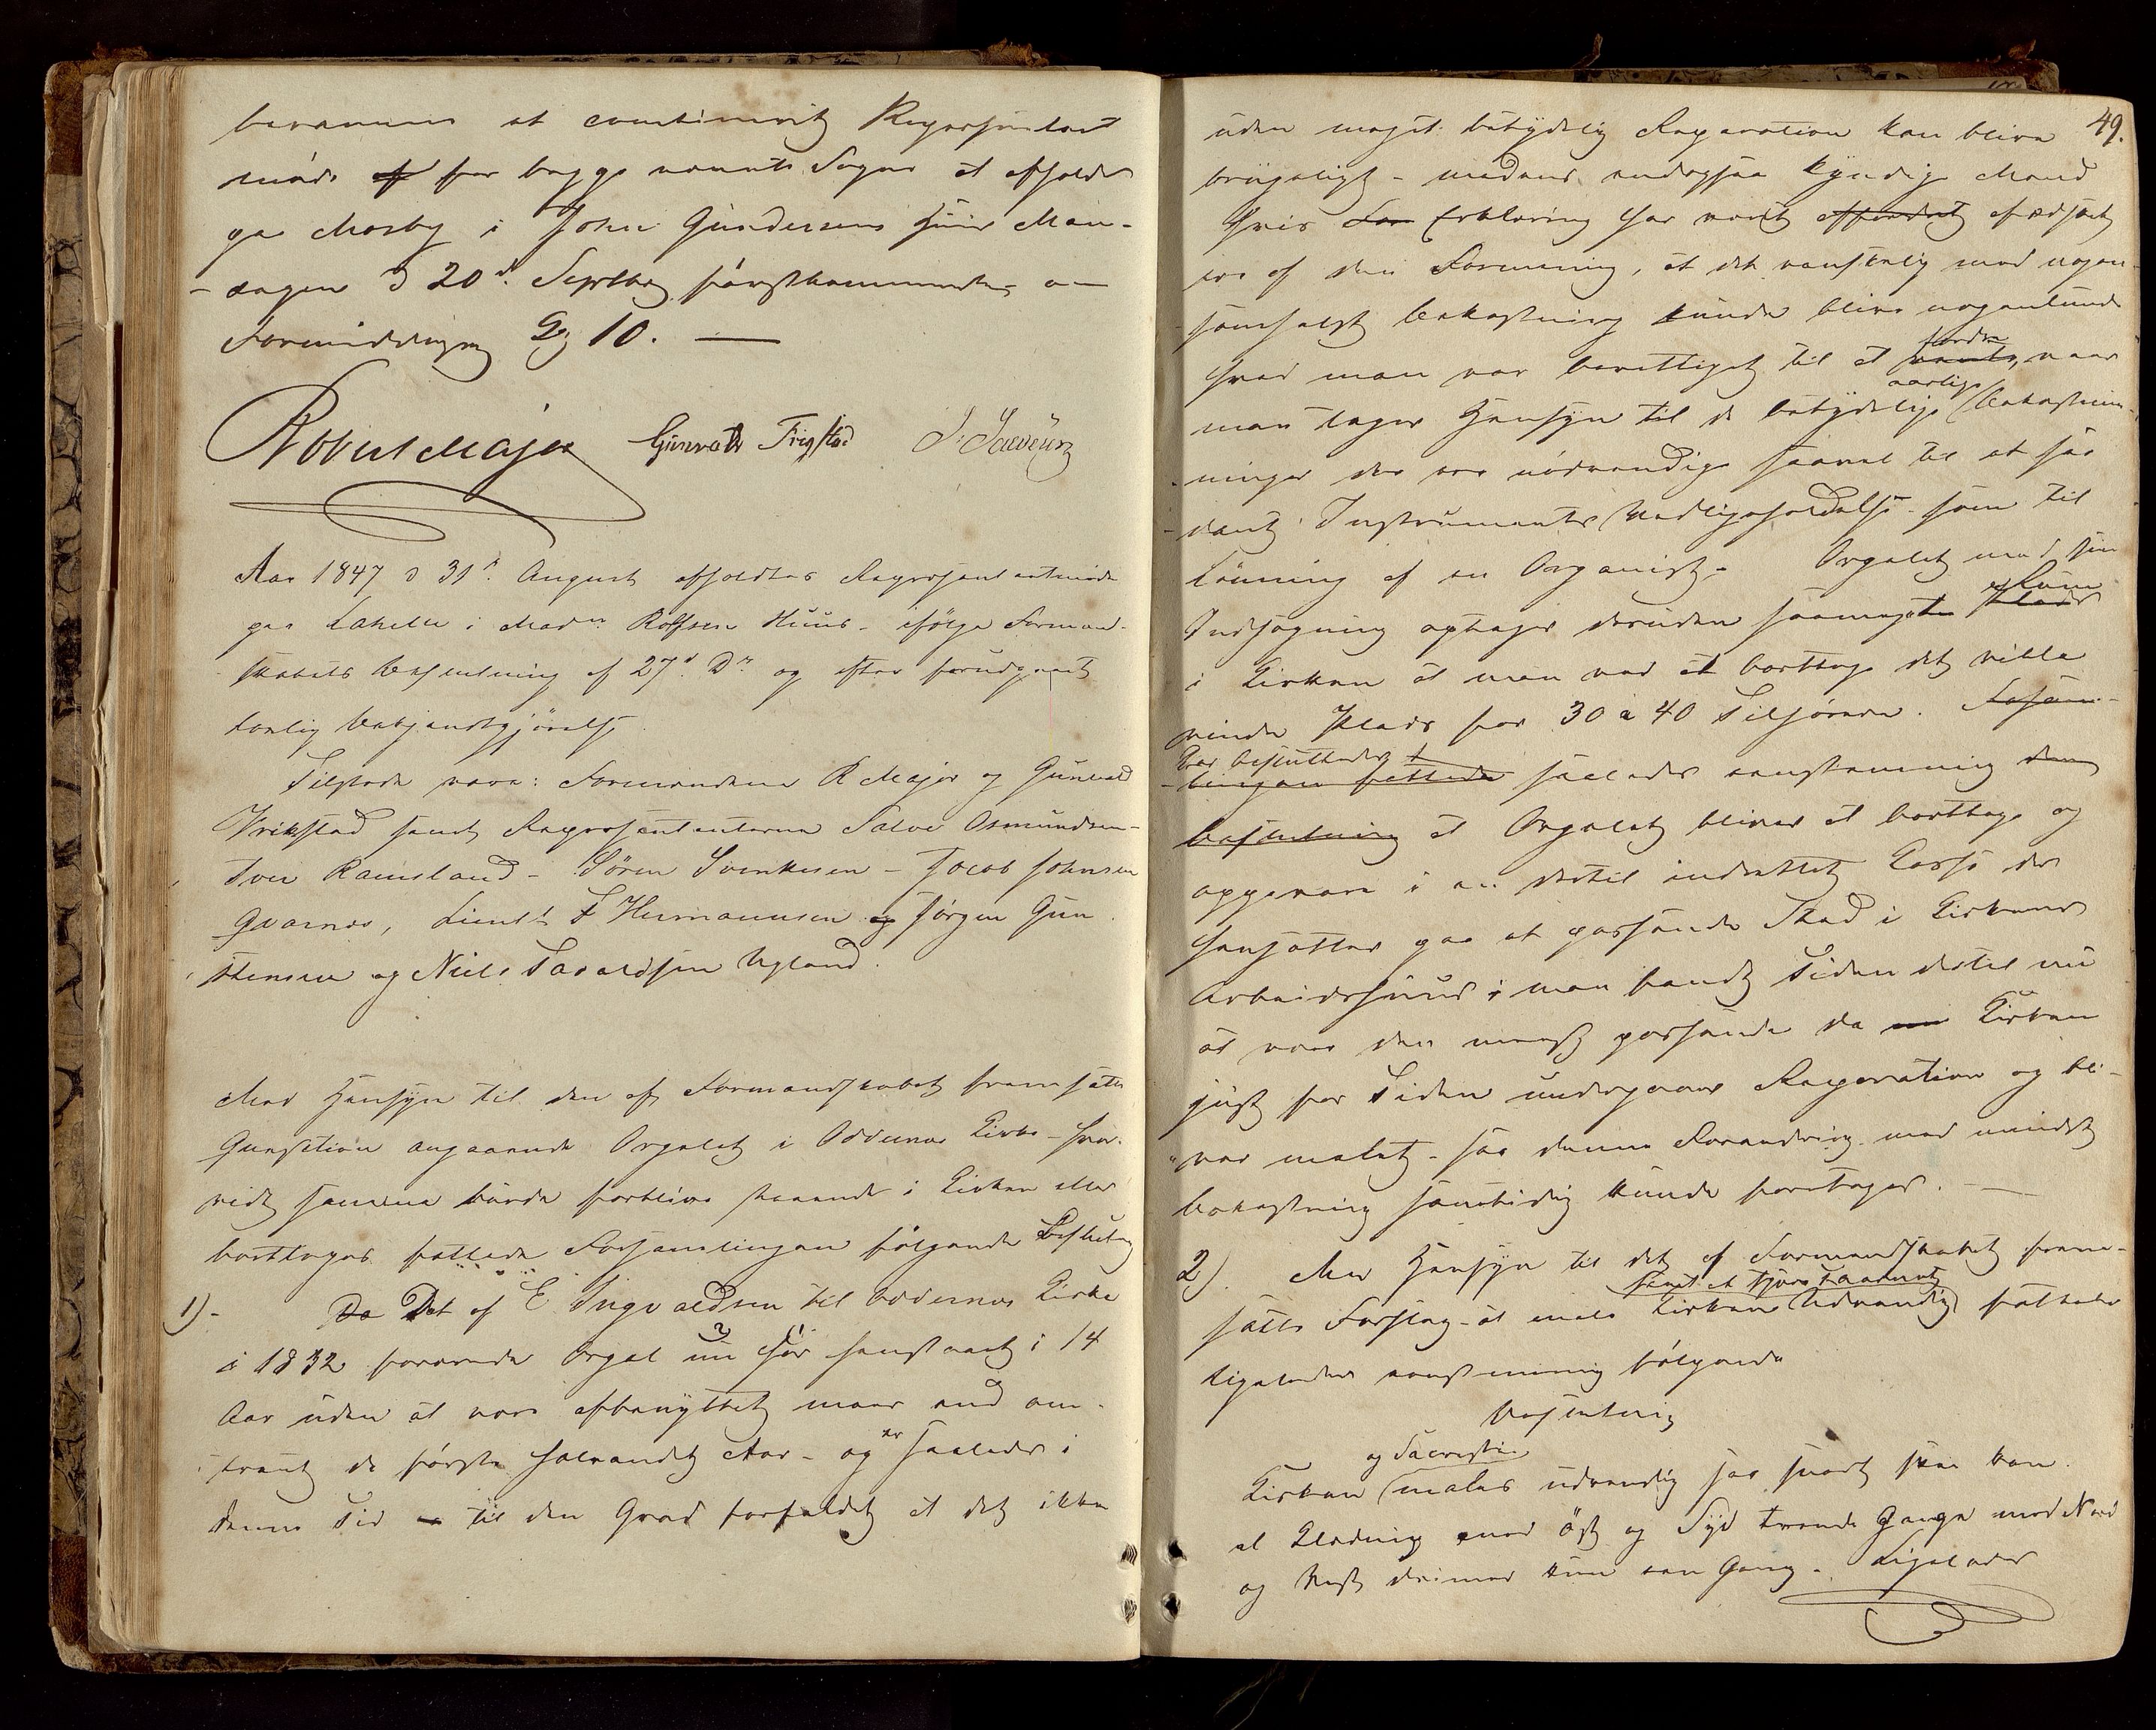 berammes et combinerit Repræsentant
møde <s>af</s> for begge nævnte Sogne at afholdes
paa Mosby i John Gundersens Huus Man-
- dagen d 20d. Septbr førstkommende om
Formiddagen Kl 10. —
Robert Major Gunvald Frigstad J. Salvesen
Aar 1847 d 31t August afholdtes Repræsentantmøde
paa Lahelle i Madm Rolfsen Huus - ifølge Formand-
skabets Beslutning af 27d Dm og efter forudgaaet
lovlig Bekjendtgjørelse.
Tilstede vare: Formændene R Major og Gunvald
Frikstad samt Repræsentanterne Salve Osmundsen -
Iver Ravnsland - Sören Svenkesen - Jacob Johnsen
Qvarnes, Lieut F Hermannsen <s>og</s> Jørgen Gun-
stensen og Niels Taraldsen Ugland.
Med Hensyn til den af Formandskabet fremsatte
Question angaaende Orgelet i Oddernes Kirke - hvor-
vidt samme burde forblive staaende i Kirken eller
borttages fattede Forsamlingen følgende Beslutng
1) - <s>Da</s> Det af E Ingvaldsen til Oddernes Kirke
i 1832 forærede Orgel nu har henstaaet i 14
Aar uden at være afbenyttet meer end om-
trent de første halvandet Aar - og er saaledes i
denne Tid til den Grad forfaldet at det ikke
49.
uden meget betydelig Reparation kan blive
brugeligt - medens endogsaa kyndige Mænd
hvis Erklæring har været <s>affordret</s> afæsket
ere af den Formening, at det vanskelig med nogen-
somhelst Bekostning kunde blive nogenlunde
hvad man var berettiget til at <s>vente</s>, fordre naar
man tager Hensyn til de betydelige aarlige Bekostnin-
- ninger der ere nødvendige saavel til et saa-
- dant Instruments Vedligeholdelse som til
Lønning af en Organist - Orgelet med sin
Indhegning optager desuden saameget <s>Plads</s> Rum
i Kirken at man ved at borttage det ville
vinde Plads for 30 a 40 Tilhørere. <s>Forsam-</s>
<s>- lingen fattede</s> Der besluttedes saaledes eenstemmig <s>den</s>
<s>Beslutning</s> at Orgelet bliver at borttage og
opgemme i en dertil indrettet Kasse der
hensættes paa et passende Sted i Kirkens
Arbeidshuus; man fandt Tiden dertil nu
at være den meest passende da Kirken
just for Tiden undergaaer Reparation og bli-
- ver malet - saa denne Forandring med mindst
bekostning samtidig kunde foretages. —
2). Med Hensyn til det af Formandskabet frem-
satte Forslag - at male Kirken samt at tjære Taarnet Udvendig fattedes
ligeledes eenstemmig følgende
Beslutning
Kirken og Sacristie males udvendig saa snart skee kan.
al Klædning mod Öst og Syd tvende Gange mod Nord
og Vest derimod kun een Gang. - Ligeledes